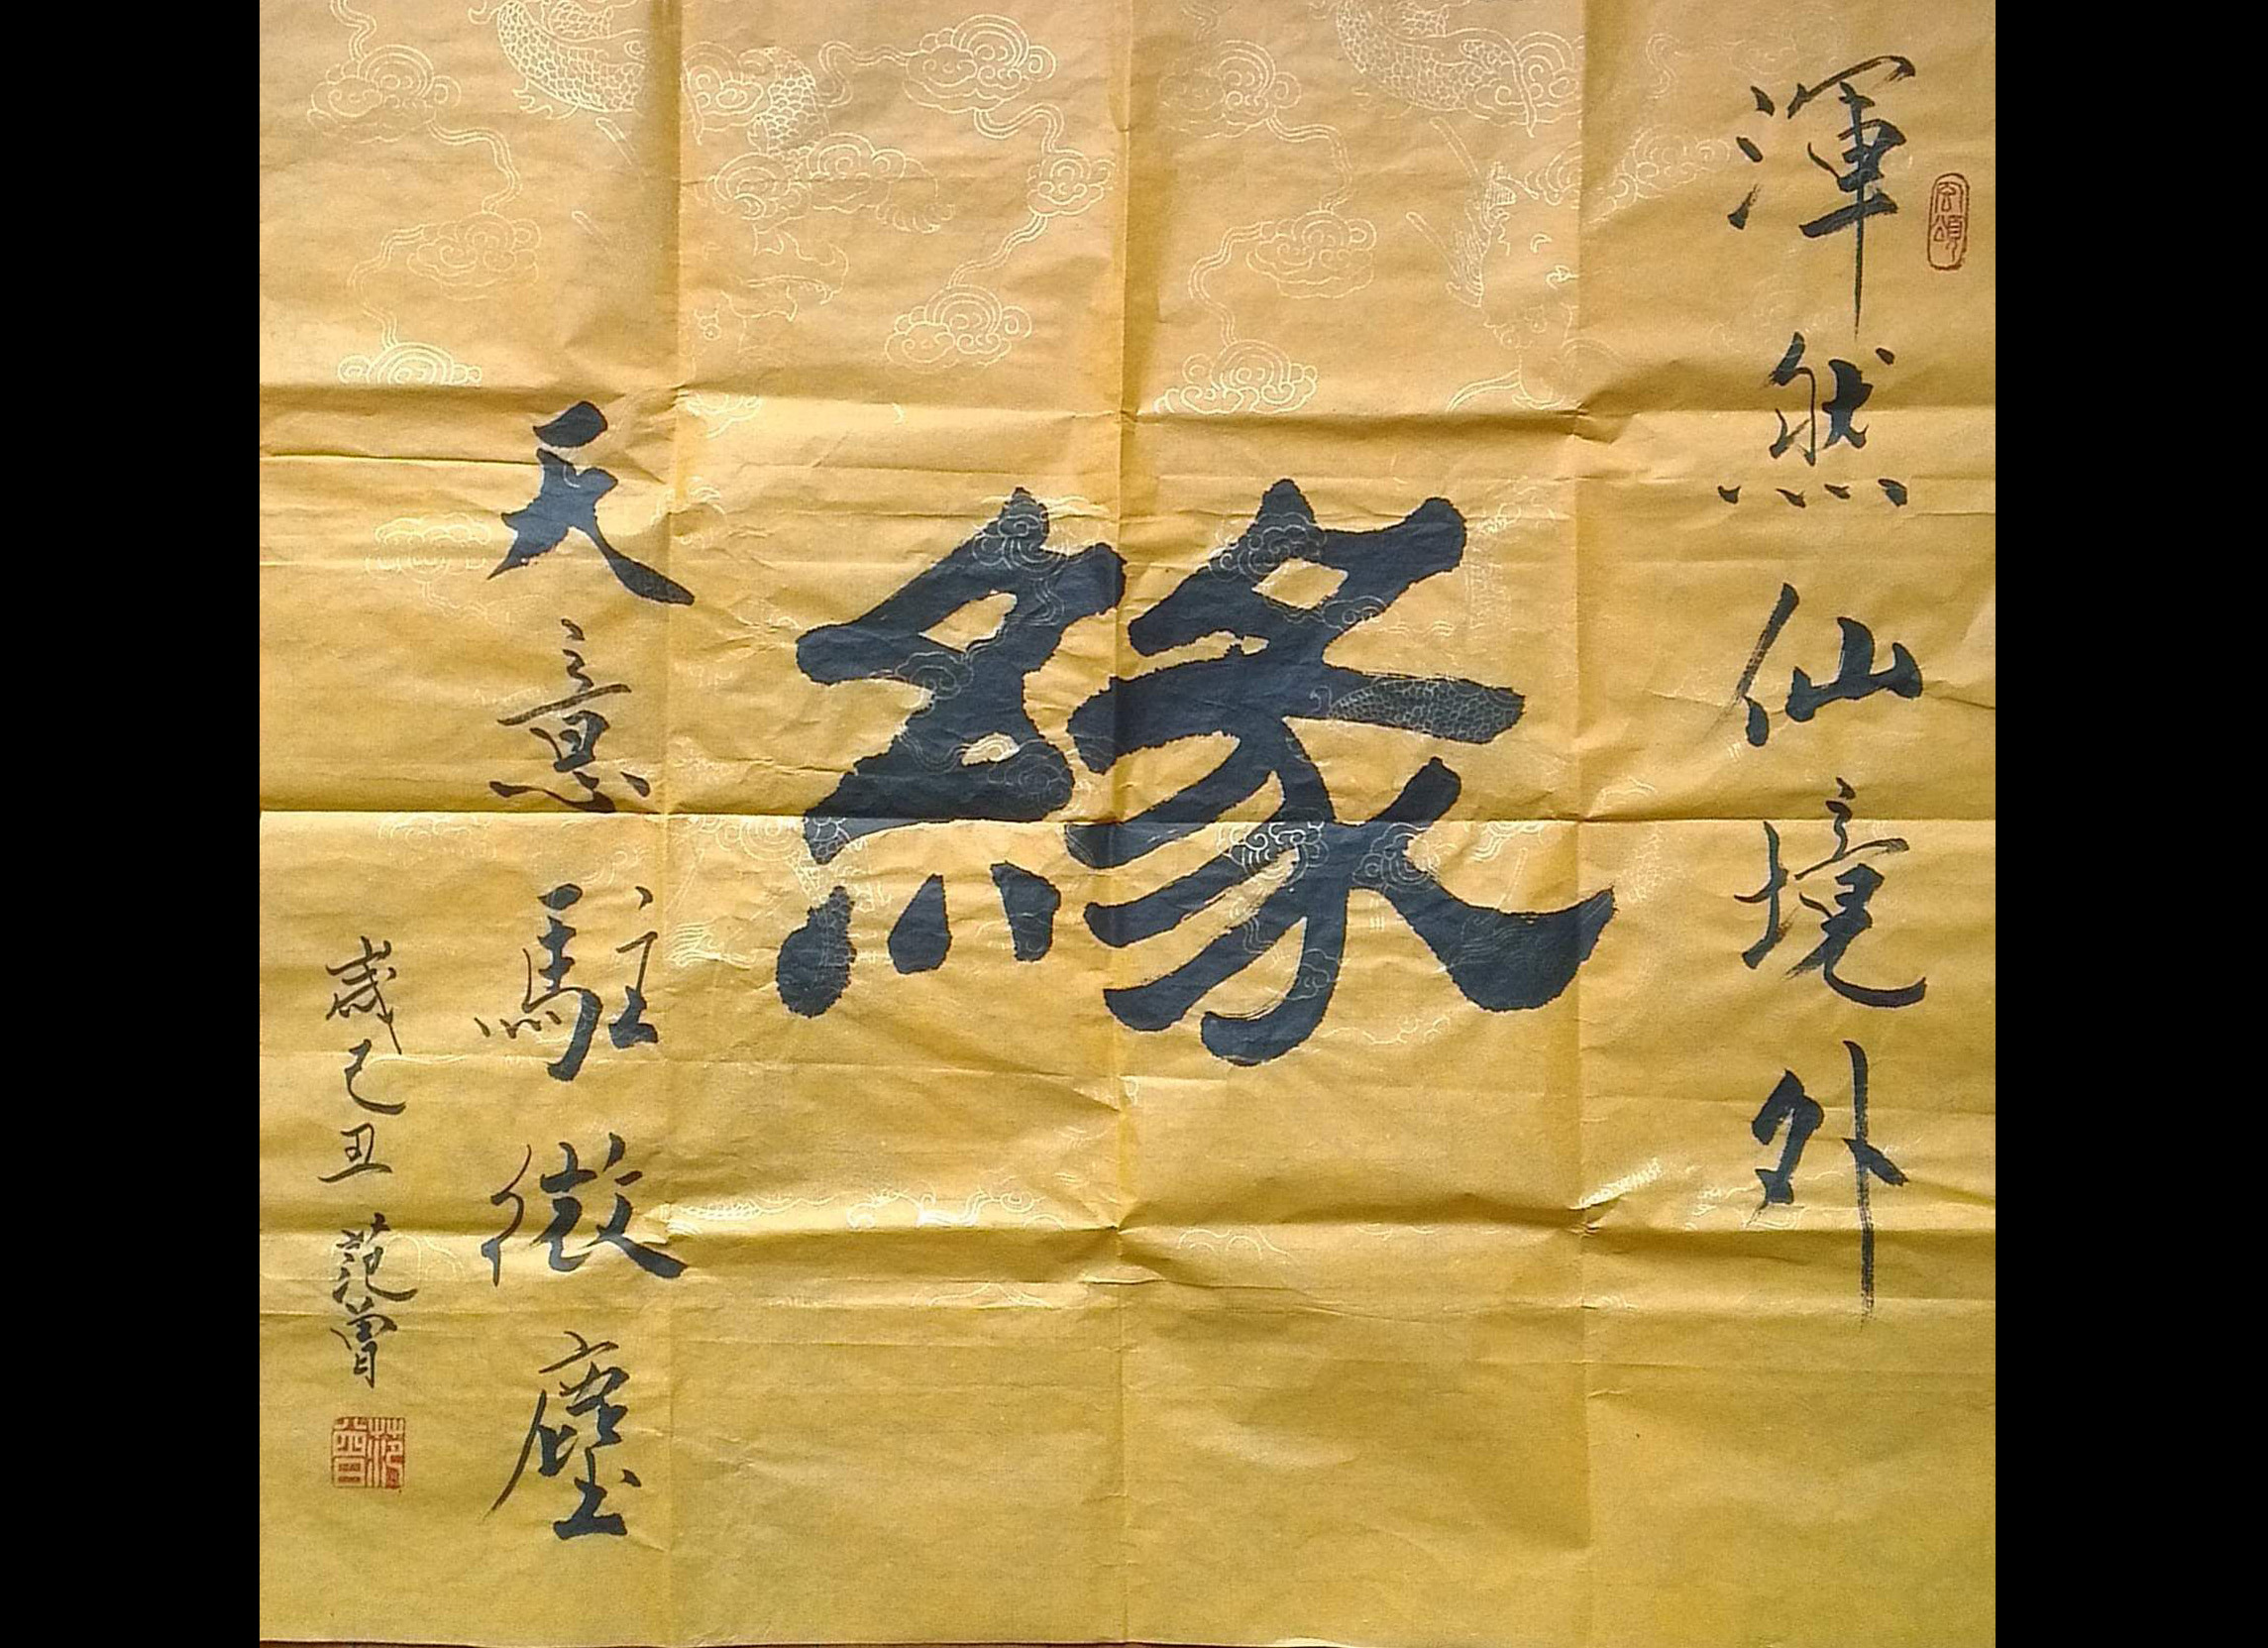 渾然仙境外
緣
天意駐微塵
歲己丑 范曾
范曾